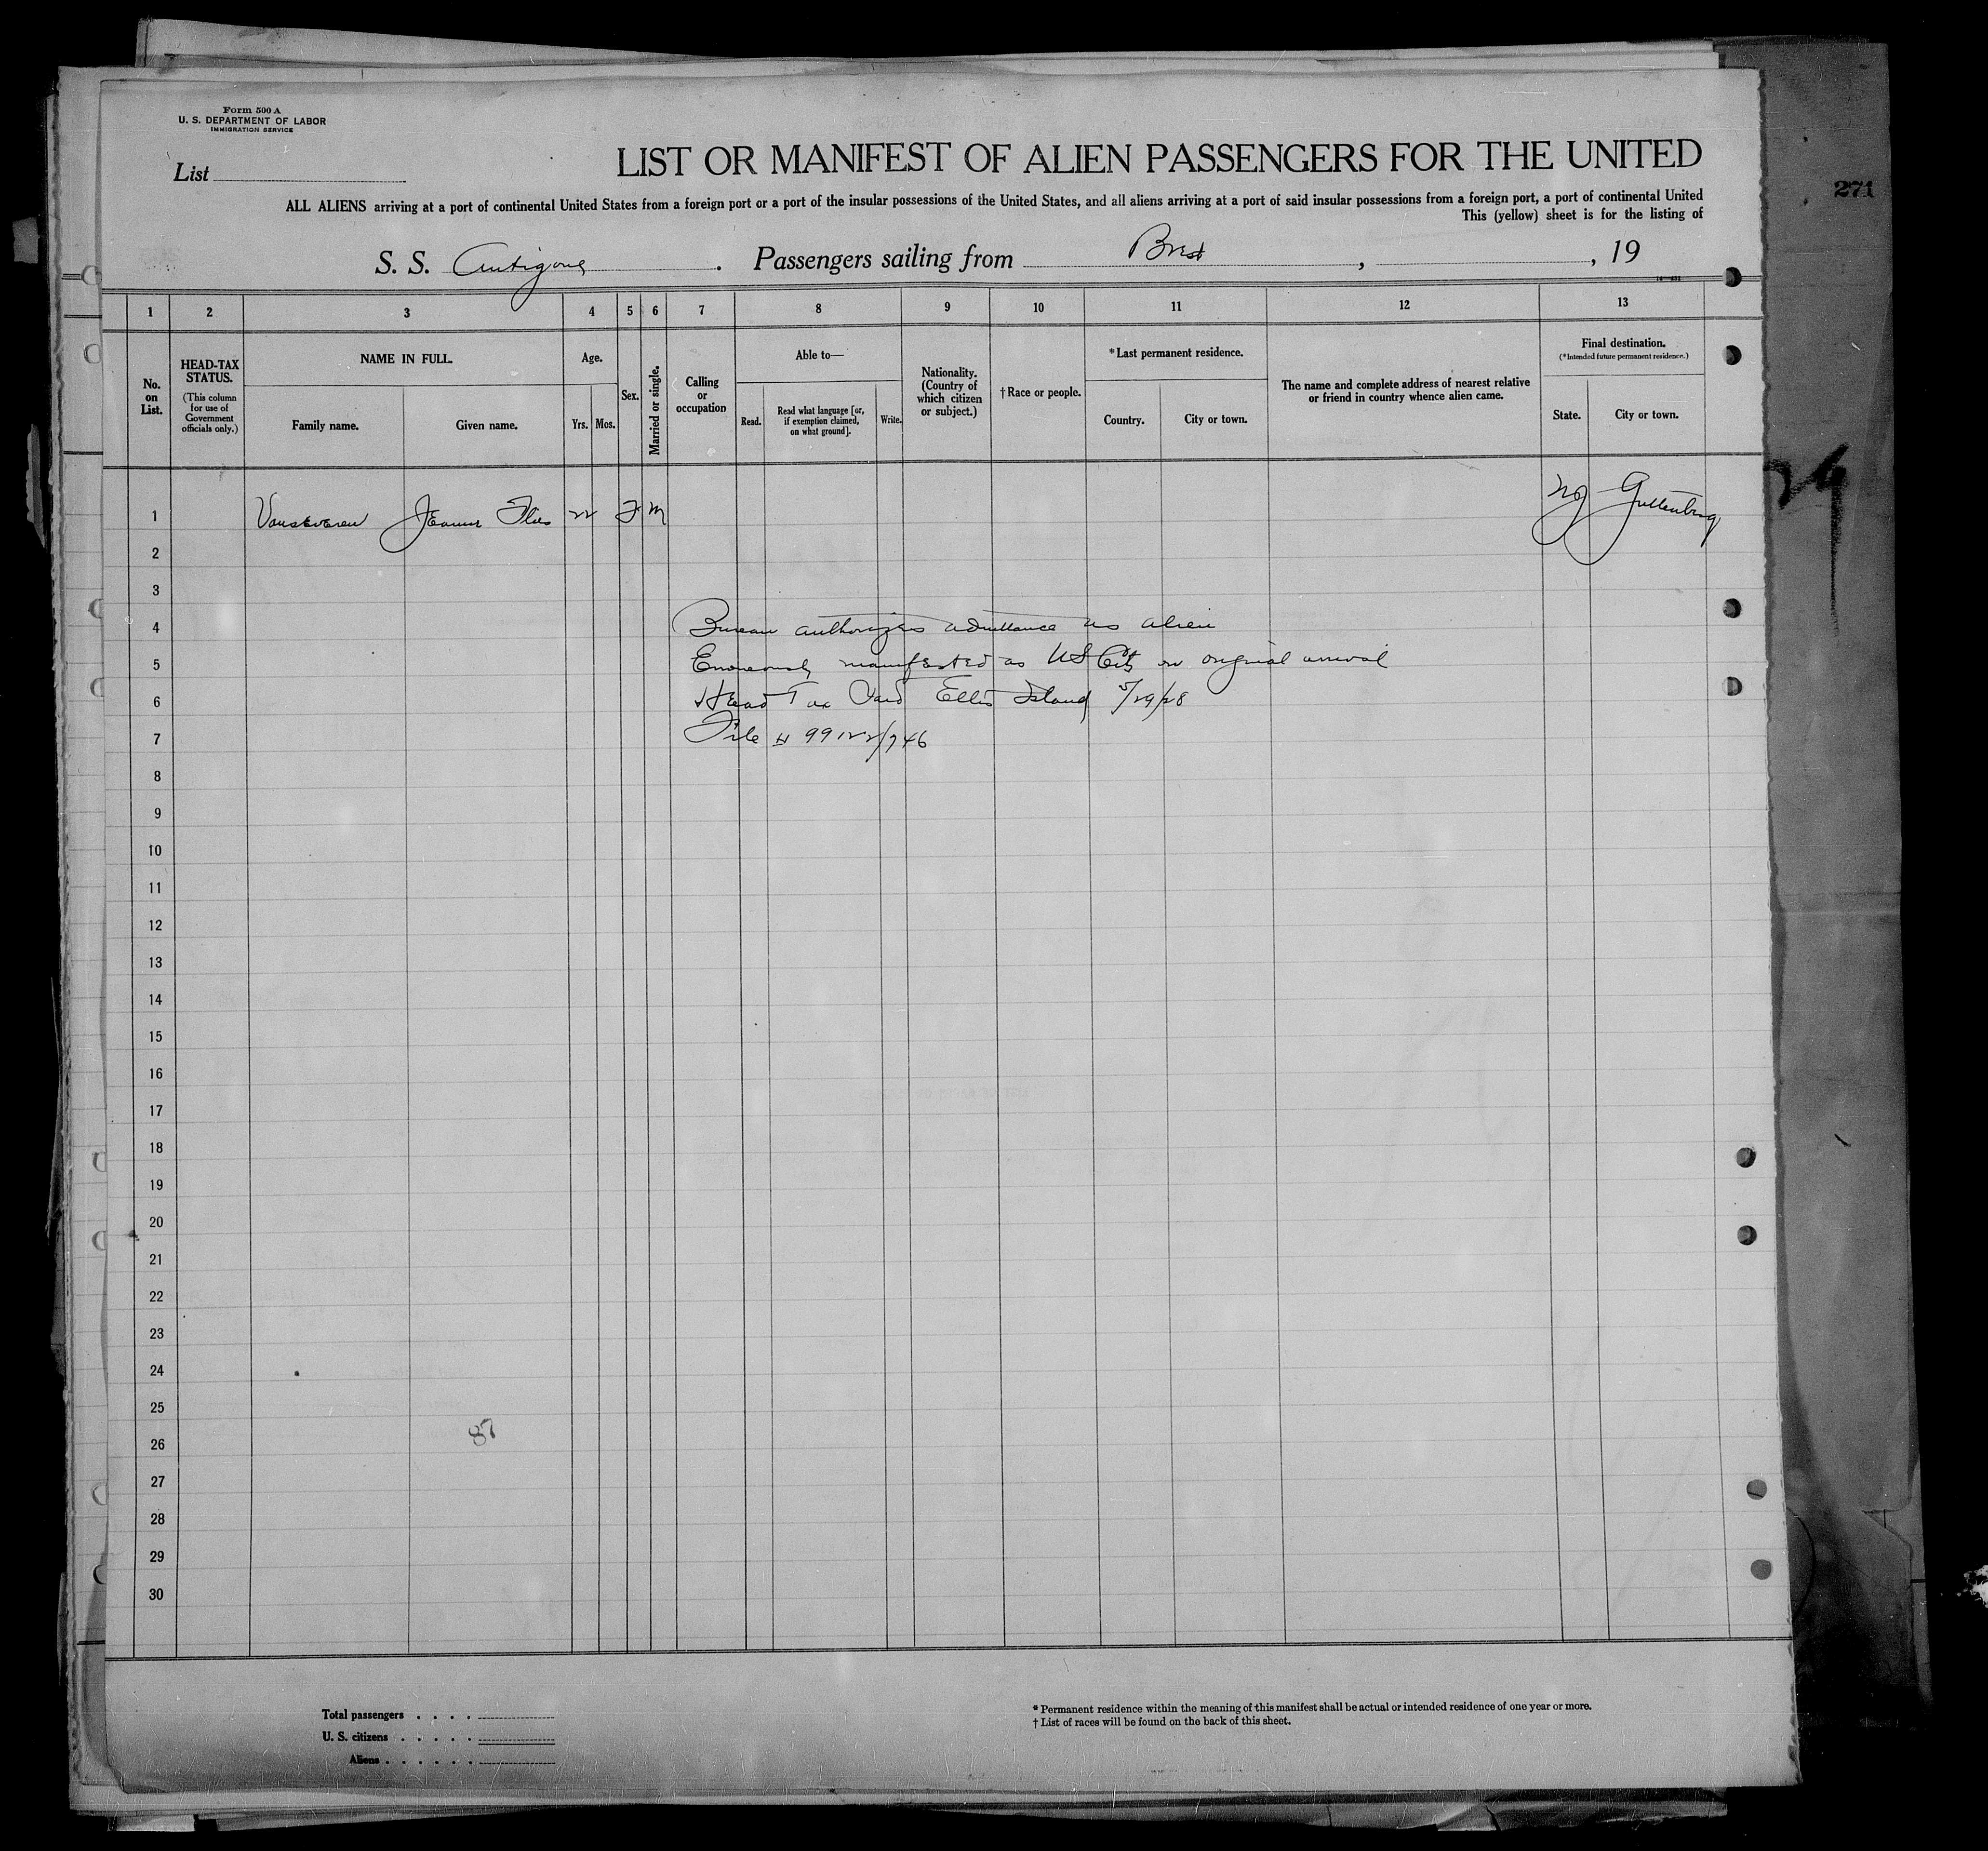 Form 500 A
U. S. DEPARTMENT OF LABOR
IMMIGRATION SERVICE
List
LIST OR MANIFEST OF ALIEN PASSENGERS FOR THE UNITED
ALL ALIENS arriving at a port of continental United States from a foreign port or a port of the insular possessions of the United States, and all aliens arriving at a port of said insular possessions from a foreign port, a port of continental United
This (yellow) sheet is for the listing of
271
S. S. Antigone . Passengers sailing from Brest , , 19
1 2 3 4 5 6 7 8 9 10 11 12 13
No. on List.
HEAD-TAX STATUS.
(This column for use of Government officials only.)
NAME IN FULL.
Family name. Given name.
Age.
Yrs. Mos.
Sex.
Married or single.
Calling or occupation
Able to—
Read. Read what language [or, if exemption claimed, on what ground]. Write.
Nationality. (Country of which citizen or subject.)
†Race or people.
*Last permanent residence.
Country. City or town.
The name and complete address of nearest relative or friend in country whence alien came.
Final destination.
(*Intended future permanent residence.)
State. City or town.
1 Vanseveren Jeanne 22 F M NJ Guttenberg
2
3
4 Bureau authorizes admittance as alien
5 Erroneously manifested as US Cit on original arrival
6 Head Tax Paid Ellis Island 5/29/28
7 File # 99122/746
8
9
10
11
12
13
14
15
16
17
18
19
20
21
22
23
24
25
26
27
28
29
30
87
Total passengers . . . .
U. S. citizens . . . . .
Aliens . . . . . .
* Permanent residence within the meaning of this manifest shall be actual or intended residence of one year or more.
† List of races will be found on the back of this sheet.